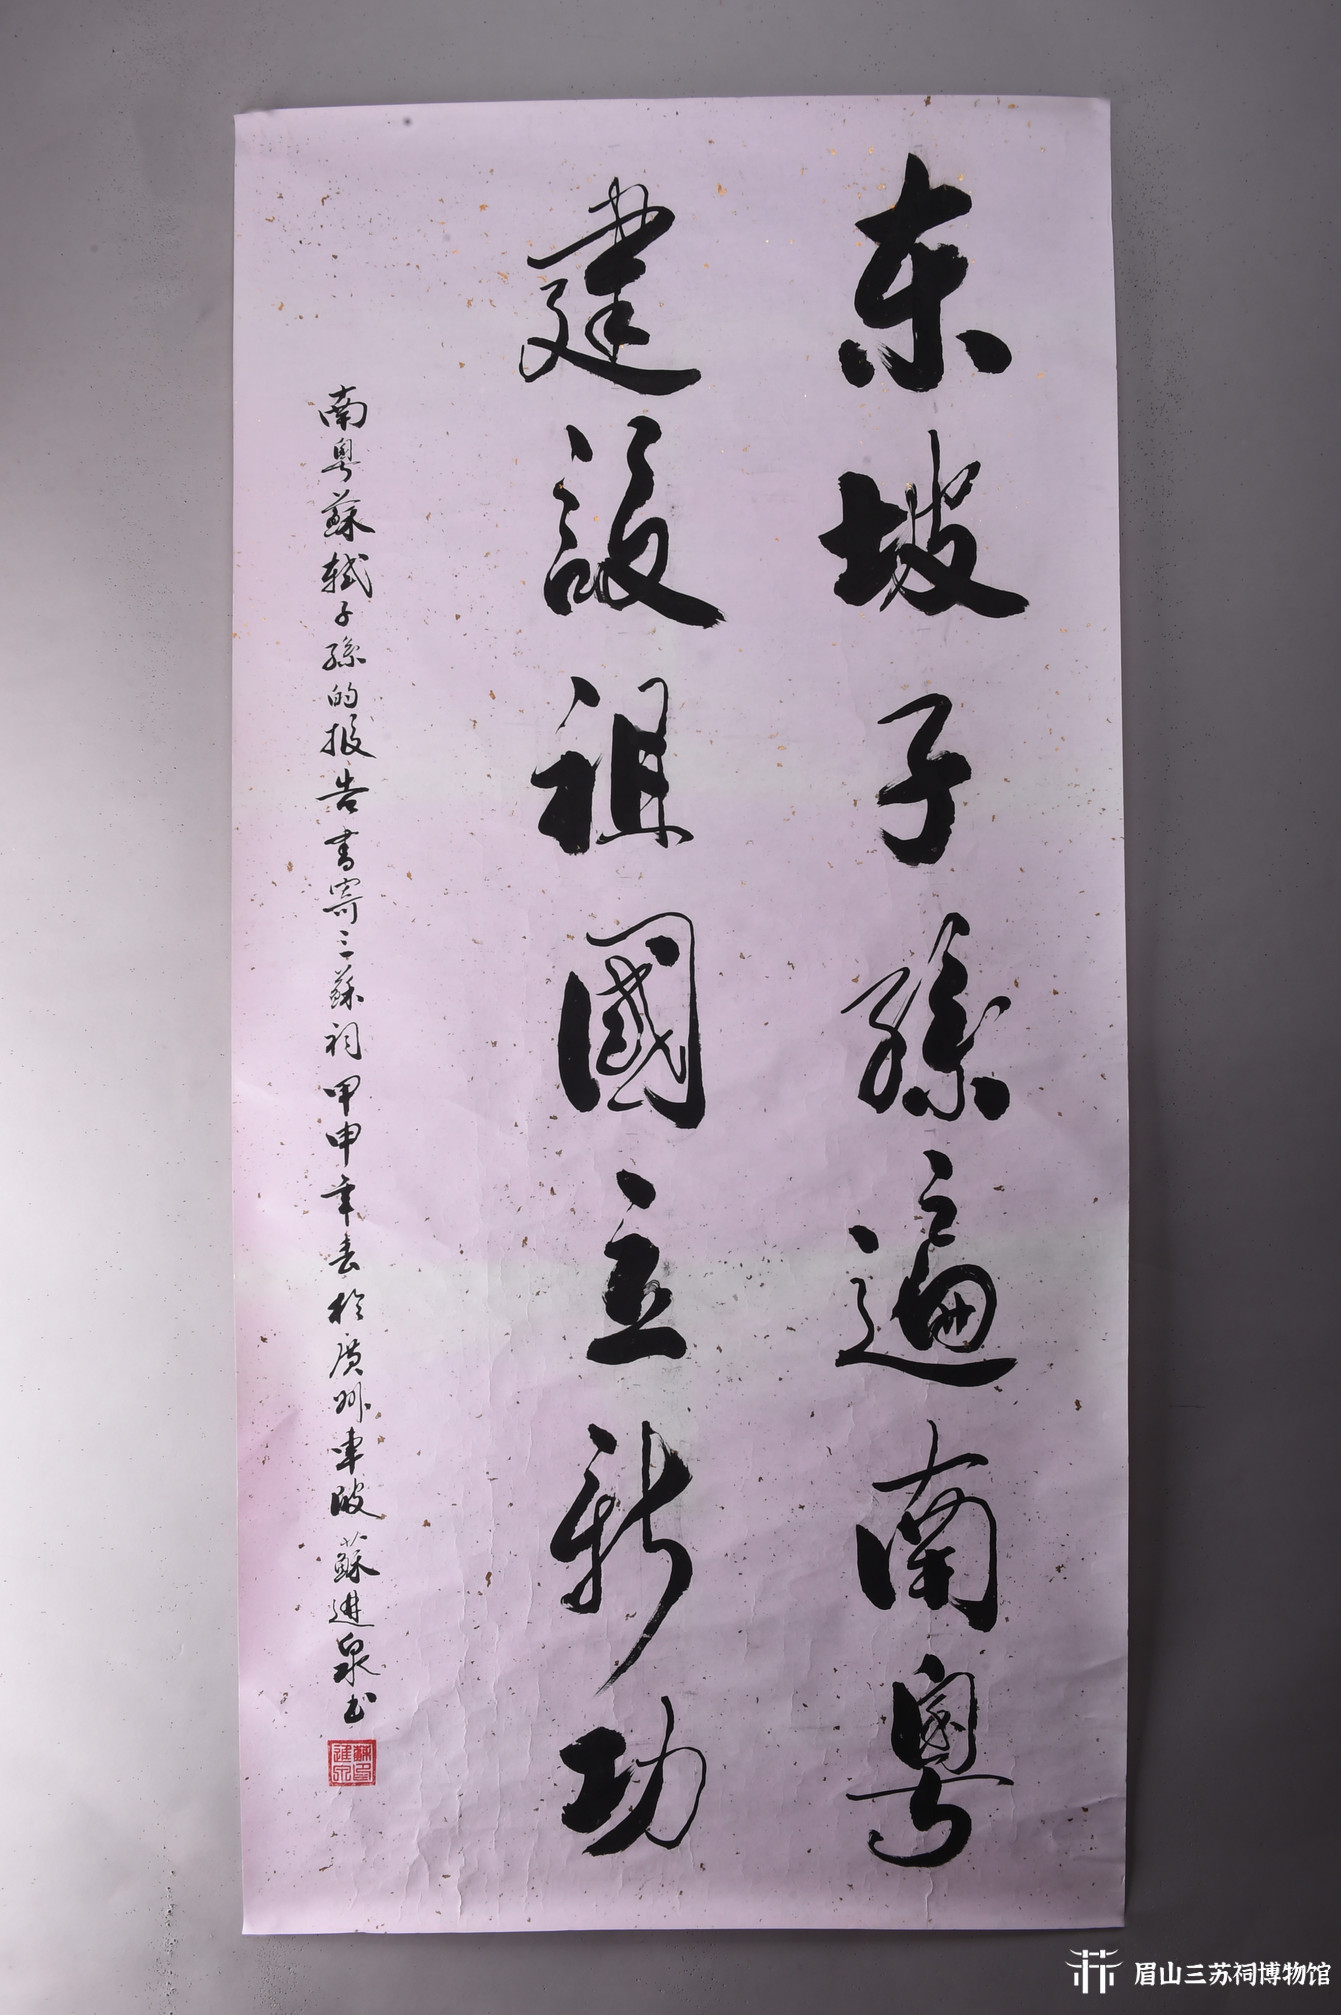 东坡子孫遍南粤
建設祖國立新功
南粤蘇軾子孫的报告書寄三蘇祠甲申年春於廣州車陂蘇進泉书
蘇進泉印
眉山三苏祠博物馆